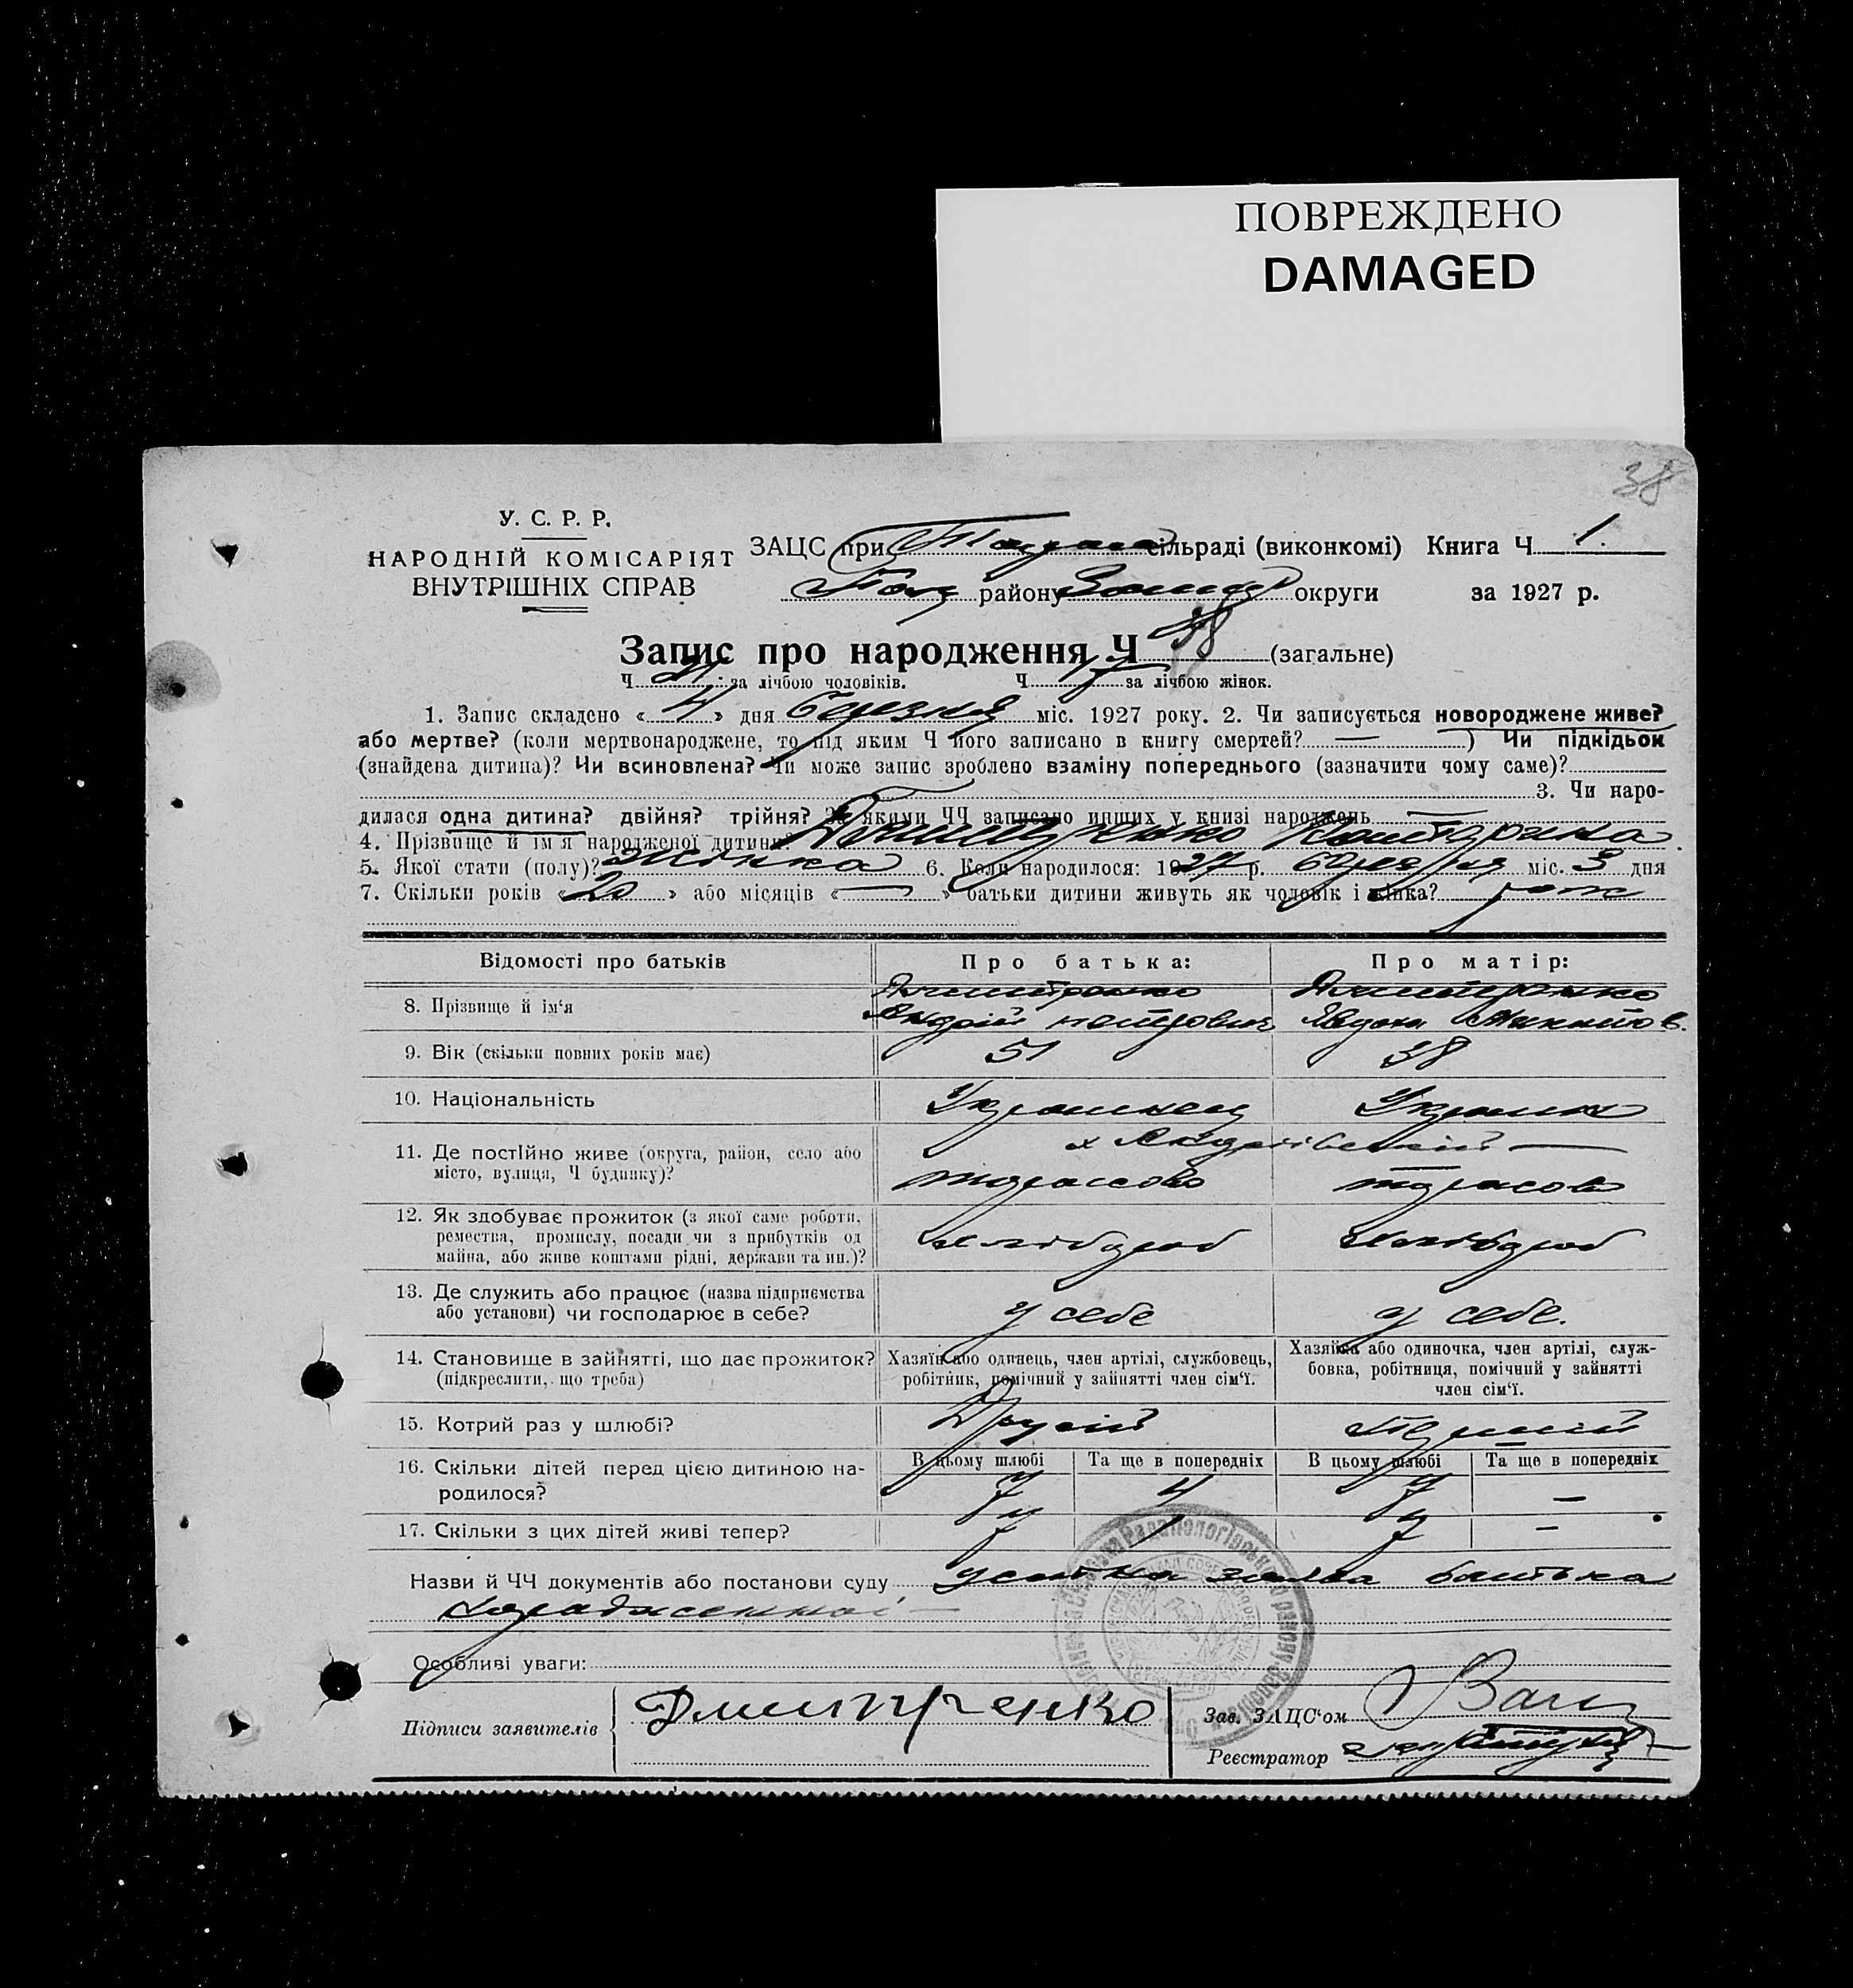 ПОВРЕЖДЕНО
DAMAGED
38
У. С. Р. Р.
НАРОДНІЙ КОМІСАРІЯТ
ВНУТРІШНІХ СПРАВ
ЗАЦС при сільраді (виконкомі) Книга Ч 1.
району округи за 1927 р.
Запис про народження Ч 38 (загальне)
Ч 21 за лічбою чоловіків. Ч 17 за лічбою жінок.
1. Запис складено « 4 » дня березня міс. 1927 року. 2. Чи записується новороджене живе?
або мертве? (коли мертвонароджене, то під яким Ч його записано в книгу смертей? — ) Чи підкідьок
(знайдена дитина)? Чи всиновлена? Чи може запис зроблено взаміну попереднього (зазначити чому саме)?
3. Чи наро-
дилася одна дитина? двійня? трійня? За якими ЧЧ записано инших у книзі народжень
4. Прізвище й ім'я народженої дитини?
5. Якої стати (полу)? жінка 6. Коли народилося: 1927 р. березня міс. 3 дня
7. Скільки років « 20 » або місяців « — » батьки дитини живуть як чоловік і жінка?
Відомості про батьків Про батька: Про матір:
8. Прізвище й ім'я
Дмитренко Дмитренко
Андрій Петрович Явдоха
9. Вік (скільки повних років має) 51 38
10. Національність Украинец Украин
11. Де постійно живе (округа, район, село або
місто, вулиця, Ч будинку)?
х Андріївський —
тарасово тарасово
12. Як здобуває прожиток (з якої саме роботи,
ремества, промислу, посади чи з прибутків од
майна, або живе коштами рідні, держави та ин.)?
хлібороб хлібороб
13. Де служить або працює (назва підприємства
або установи) чи господарює в себе?
у себе у себе.
14. Становище в зайнятті, що дає прожиток?
(підкреслити, що треба)
Хазяїн або одинець, член артілі, службовець,
робітник, помічний у зайнятті член сім'ї.
Хазяйка або одиночка, член артілі, служ-
бовка, робітниця, помічний у зайнятті
член сім'ї.
15. Котрий раз у шлюбі? Другій Первий
16. Скільки дітей перед цією дитиною на-
родилося?
В цьому шлюбі Та ще в попередніх В цьому шлюбі Та ще в попередніх
7 4 7 —
17. Скільки з цих дітей живі тепер? 7 1 7 —
Назви й ЧЧ документів або постанови суду усотна заява батька
Особливі уваги:
Підписи заявителів Дмитренко
Зав. ЗАЦС'ом
Реєстратор